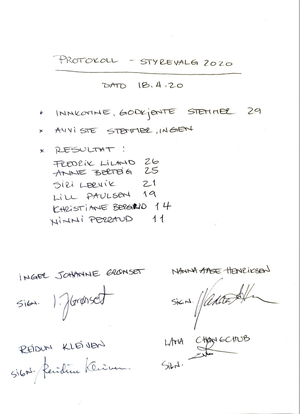 PROTOKOLL - STYREVALG 2020
DATO 18.4.20
* INNKOMNE, GODKJENTE STEMMER 29
* AVVISTE STEMMER, INGEN
* RESULTAT:
FREDRIK LILAND 26
ANNE BERTEIG 25
SIRI LERVIK 21
LILL PAULSEN 19
KHRISTIANE BERGRUD 14
NINNI PERRAUD 11
INGER JOHANNE GRØNSET
NANNA AASE HENRIKSEN
SIGN. I. J Grønset
SIGN.
REIDUN KLEIVEN
LAMA CHANGCHUB
SIGN. Reidun Kleiven
SIGN.